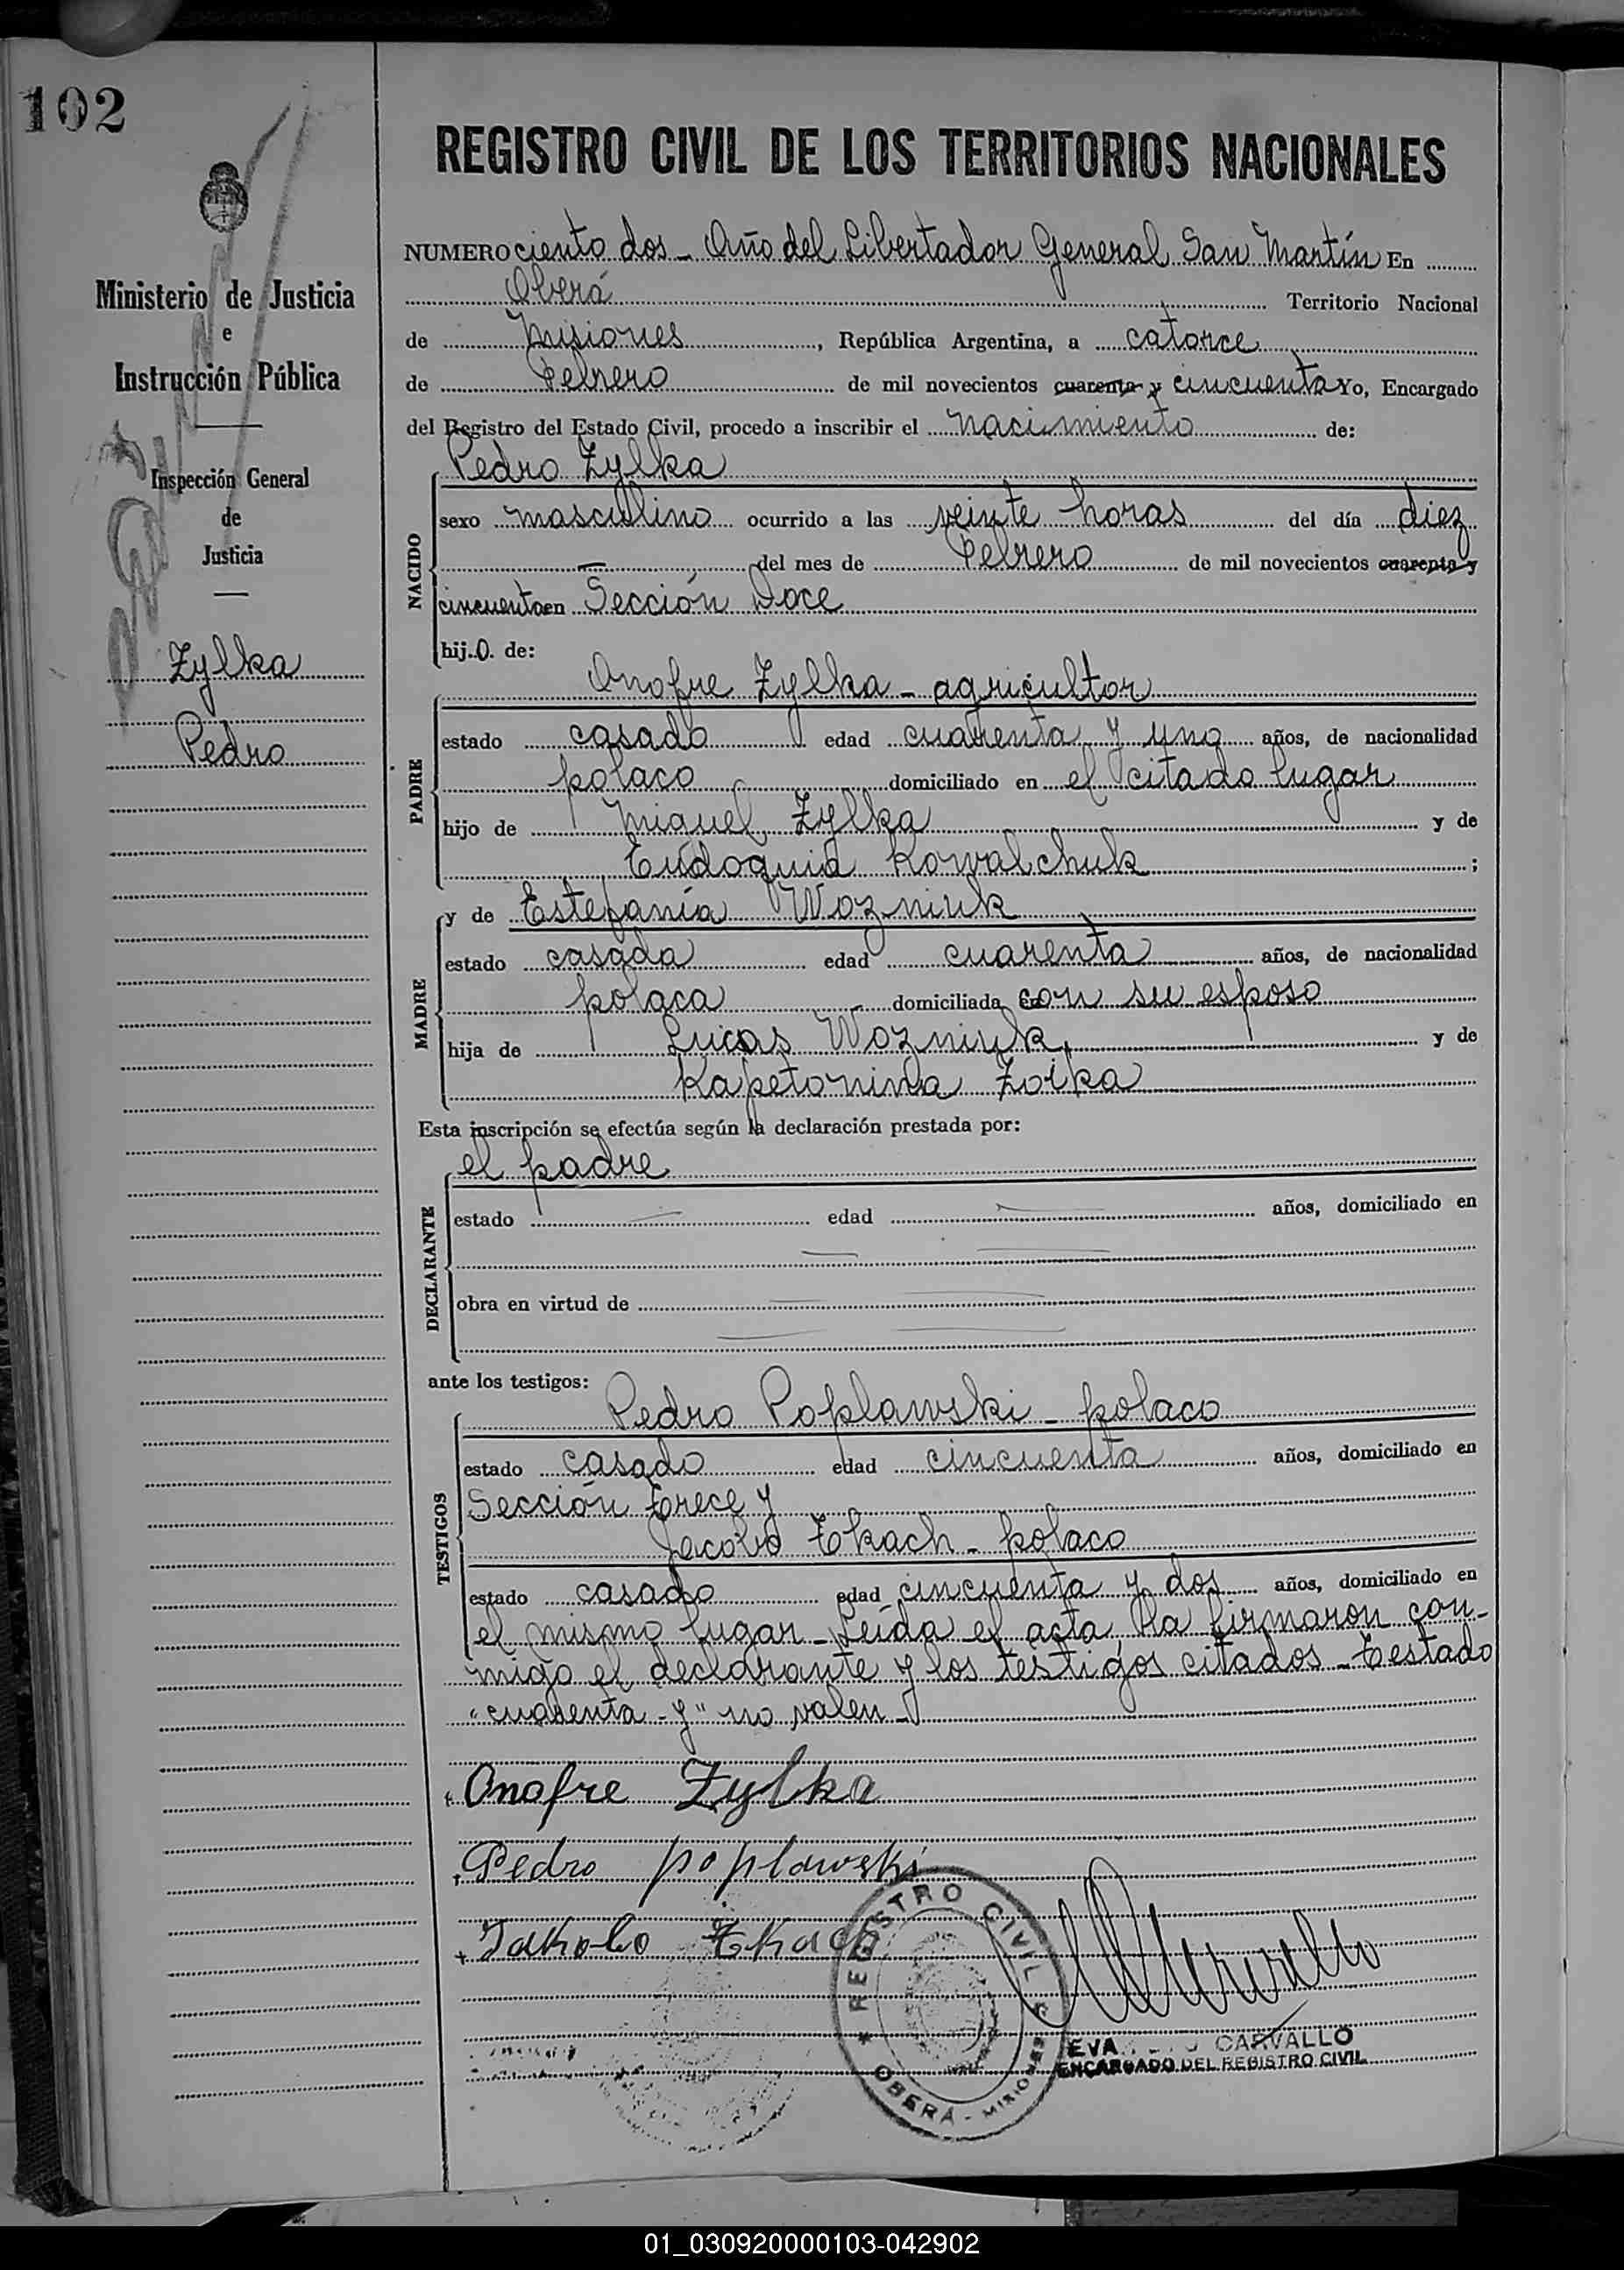 102
REGISTRO CIVIL DE LOS TERRITORIOS NACIONALES
Ministerio de Justicia
e
Instrucción Pública
Inspección General
de
Justicia
Zylka
Pedro
NUMERO ciento dos - Año del Libertador General San Martín En
Oberá Territorio Nacional
de Misiones, República Argentina, a catorce
de Febrero de mil novecientos cuarenta y cincuenta Yo, Encargado
del Registro del Estado Civil, procedo a inscribir el nacimiento de:
Pedro Zylka
NACIDO
sexo masculino ocurrido a las veinte horas del día diez
del mes de Febrero de mil novecientos cuarenta y
cincuenta en Sección Doce
hijo de:
PADRE
Onofre Zylka - agricultor
estado casado edad cuarenta y uno años, de nacionalidad
polaco domiciliado en el citado lugar
hijo de Miguel Zylka y de
Eudoquia Kowalchuk;
MADRE
y de Estefanía Wozniuk
estado casada edad cuarenta años, de nacionalidad
polaca domiciliada en con su esposo
hija de Lucas Wozniuk y de
Kapetonina Zoika
Esta inscripción se efectúa según la declaración prestada por:
DECLARANTE
el padre
estado edad años, domiciliado en
obra en virtud de
ante los testigos:
TESTIGOS
Pedro Poplawski - polaco
estado casado edad cincuenta años, domiciliado en
Sección trece y
Jacobo Tkach - polaco
estado casado edad cincuenta y dos años, domiciliado en
el mismo lugar - Leída el acta, la firmaron con-
migo el declarante y los testigos citados - Testado
"cuarenta - y" no valen -
Onofre Zylka
Pedro poplawski
Jakobo Tkach
REGISTRO CIVIL
OBERÁ - MISIONES
EVA CARVALLO
ENCARGADO DEL REGISTRO CIVIL
01_030920000103-042902